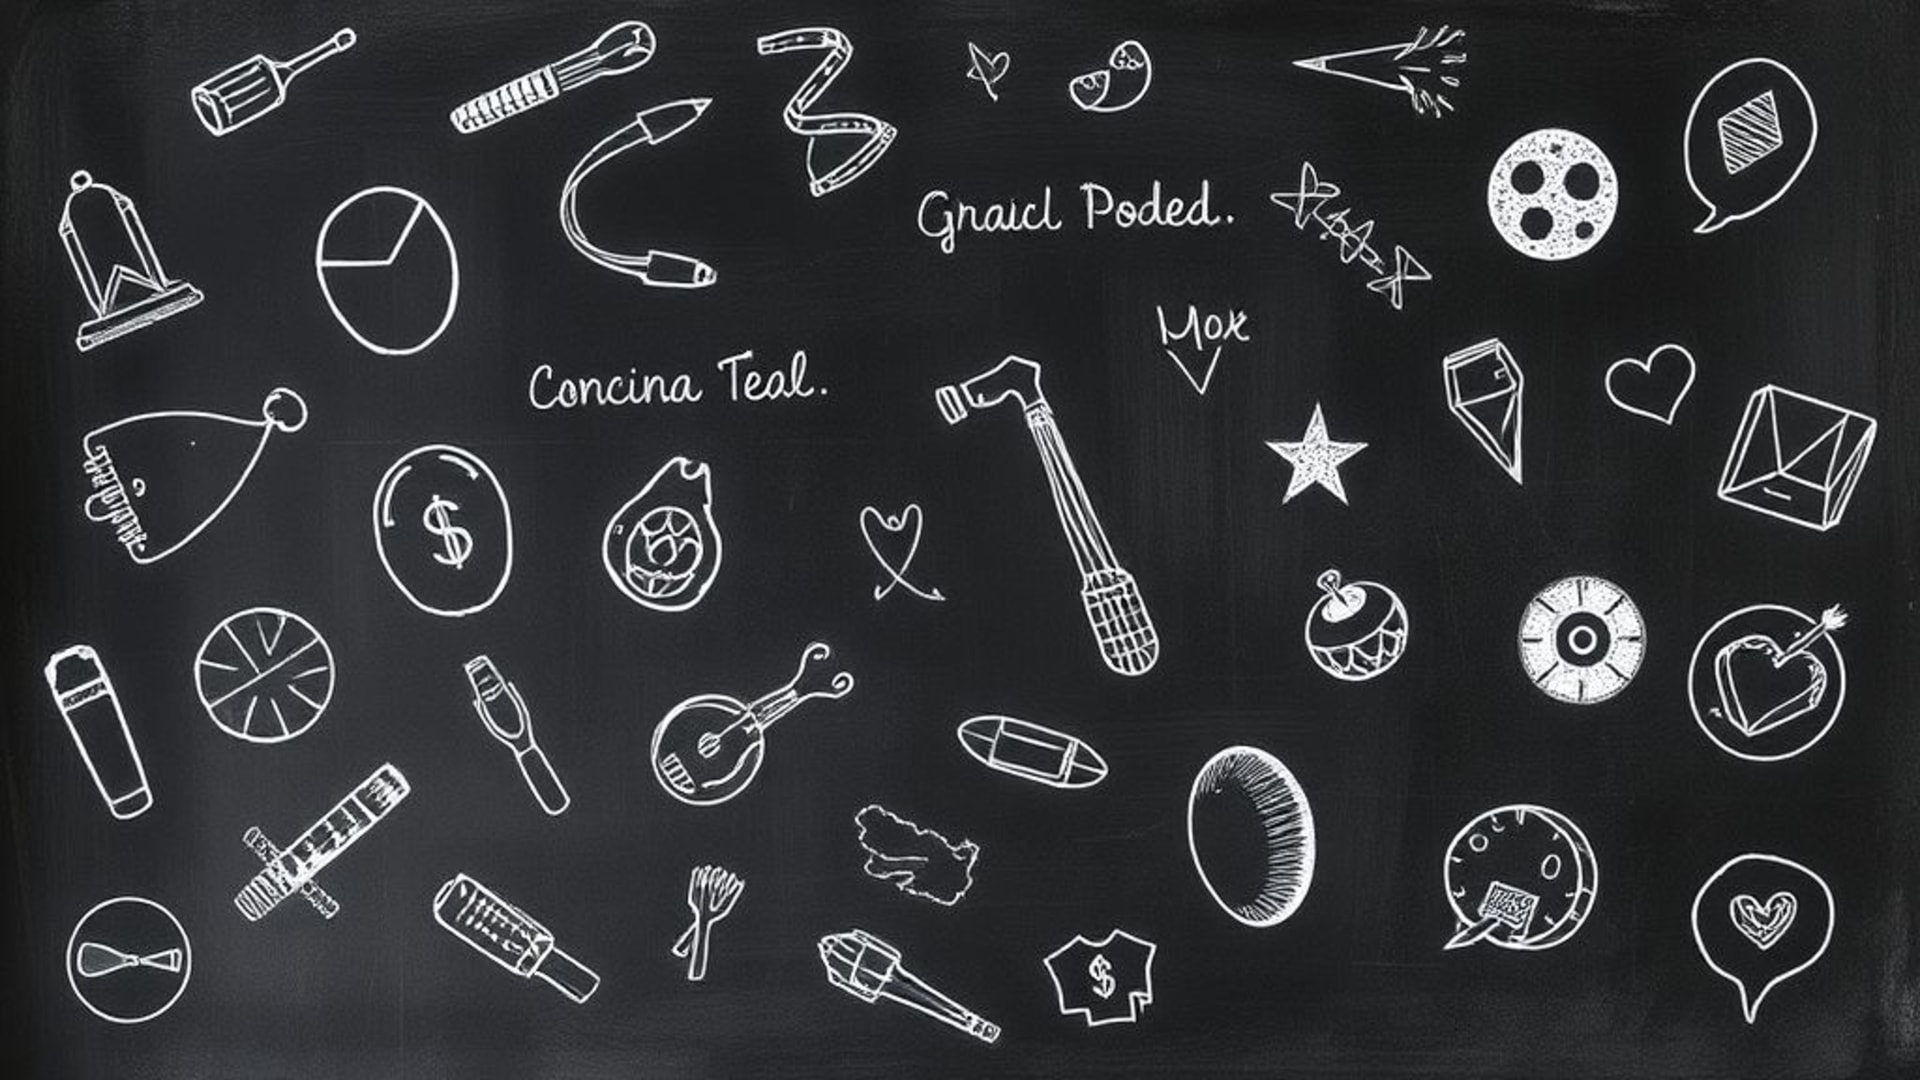 Graicl Poded.
Mox
Concina Teal.
$
$